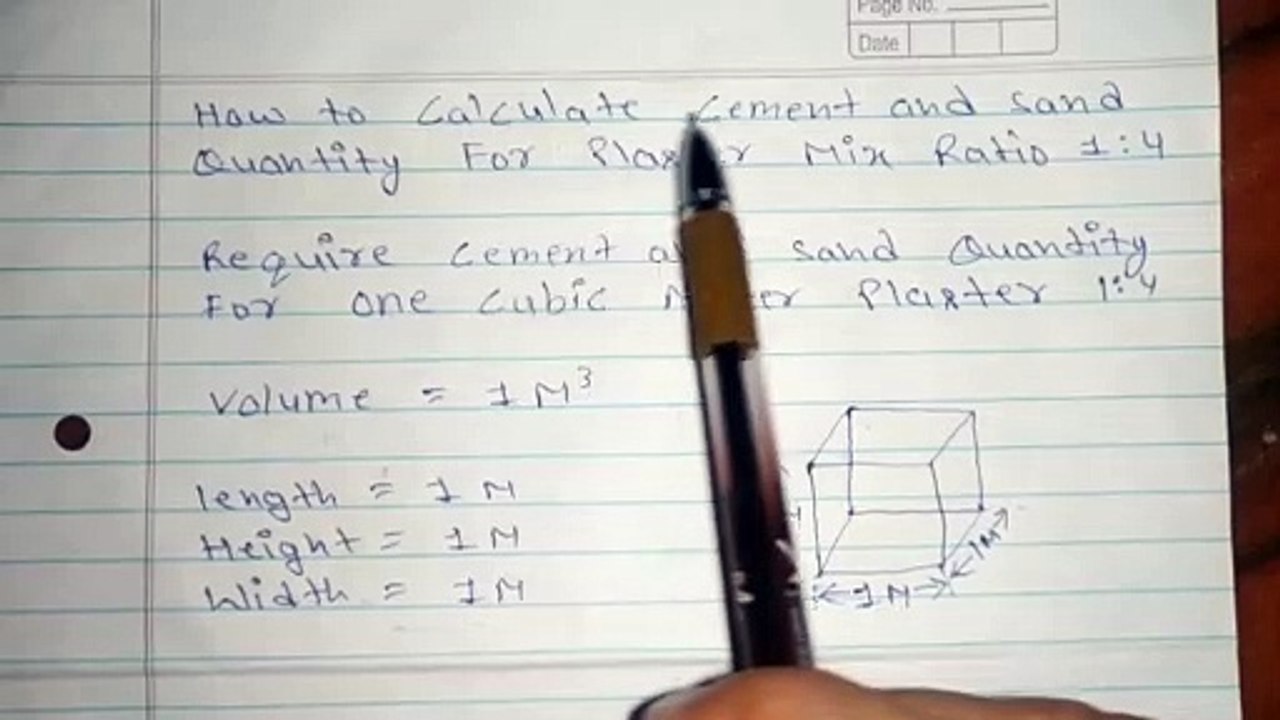 Page No.
Date
How to Calculate Cement and Sand
Quantity For Plaster Mix Ratio 1:4
Require Cement a sand Quantity
For one Cubic Meter Plaster 1:4
Volume = 1 M³
length = 1 M
Height = 1M
Width = 1M
1M
1M